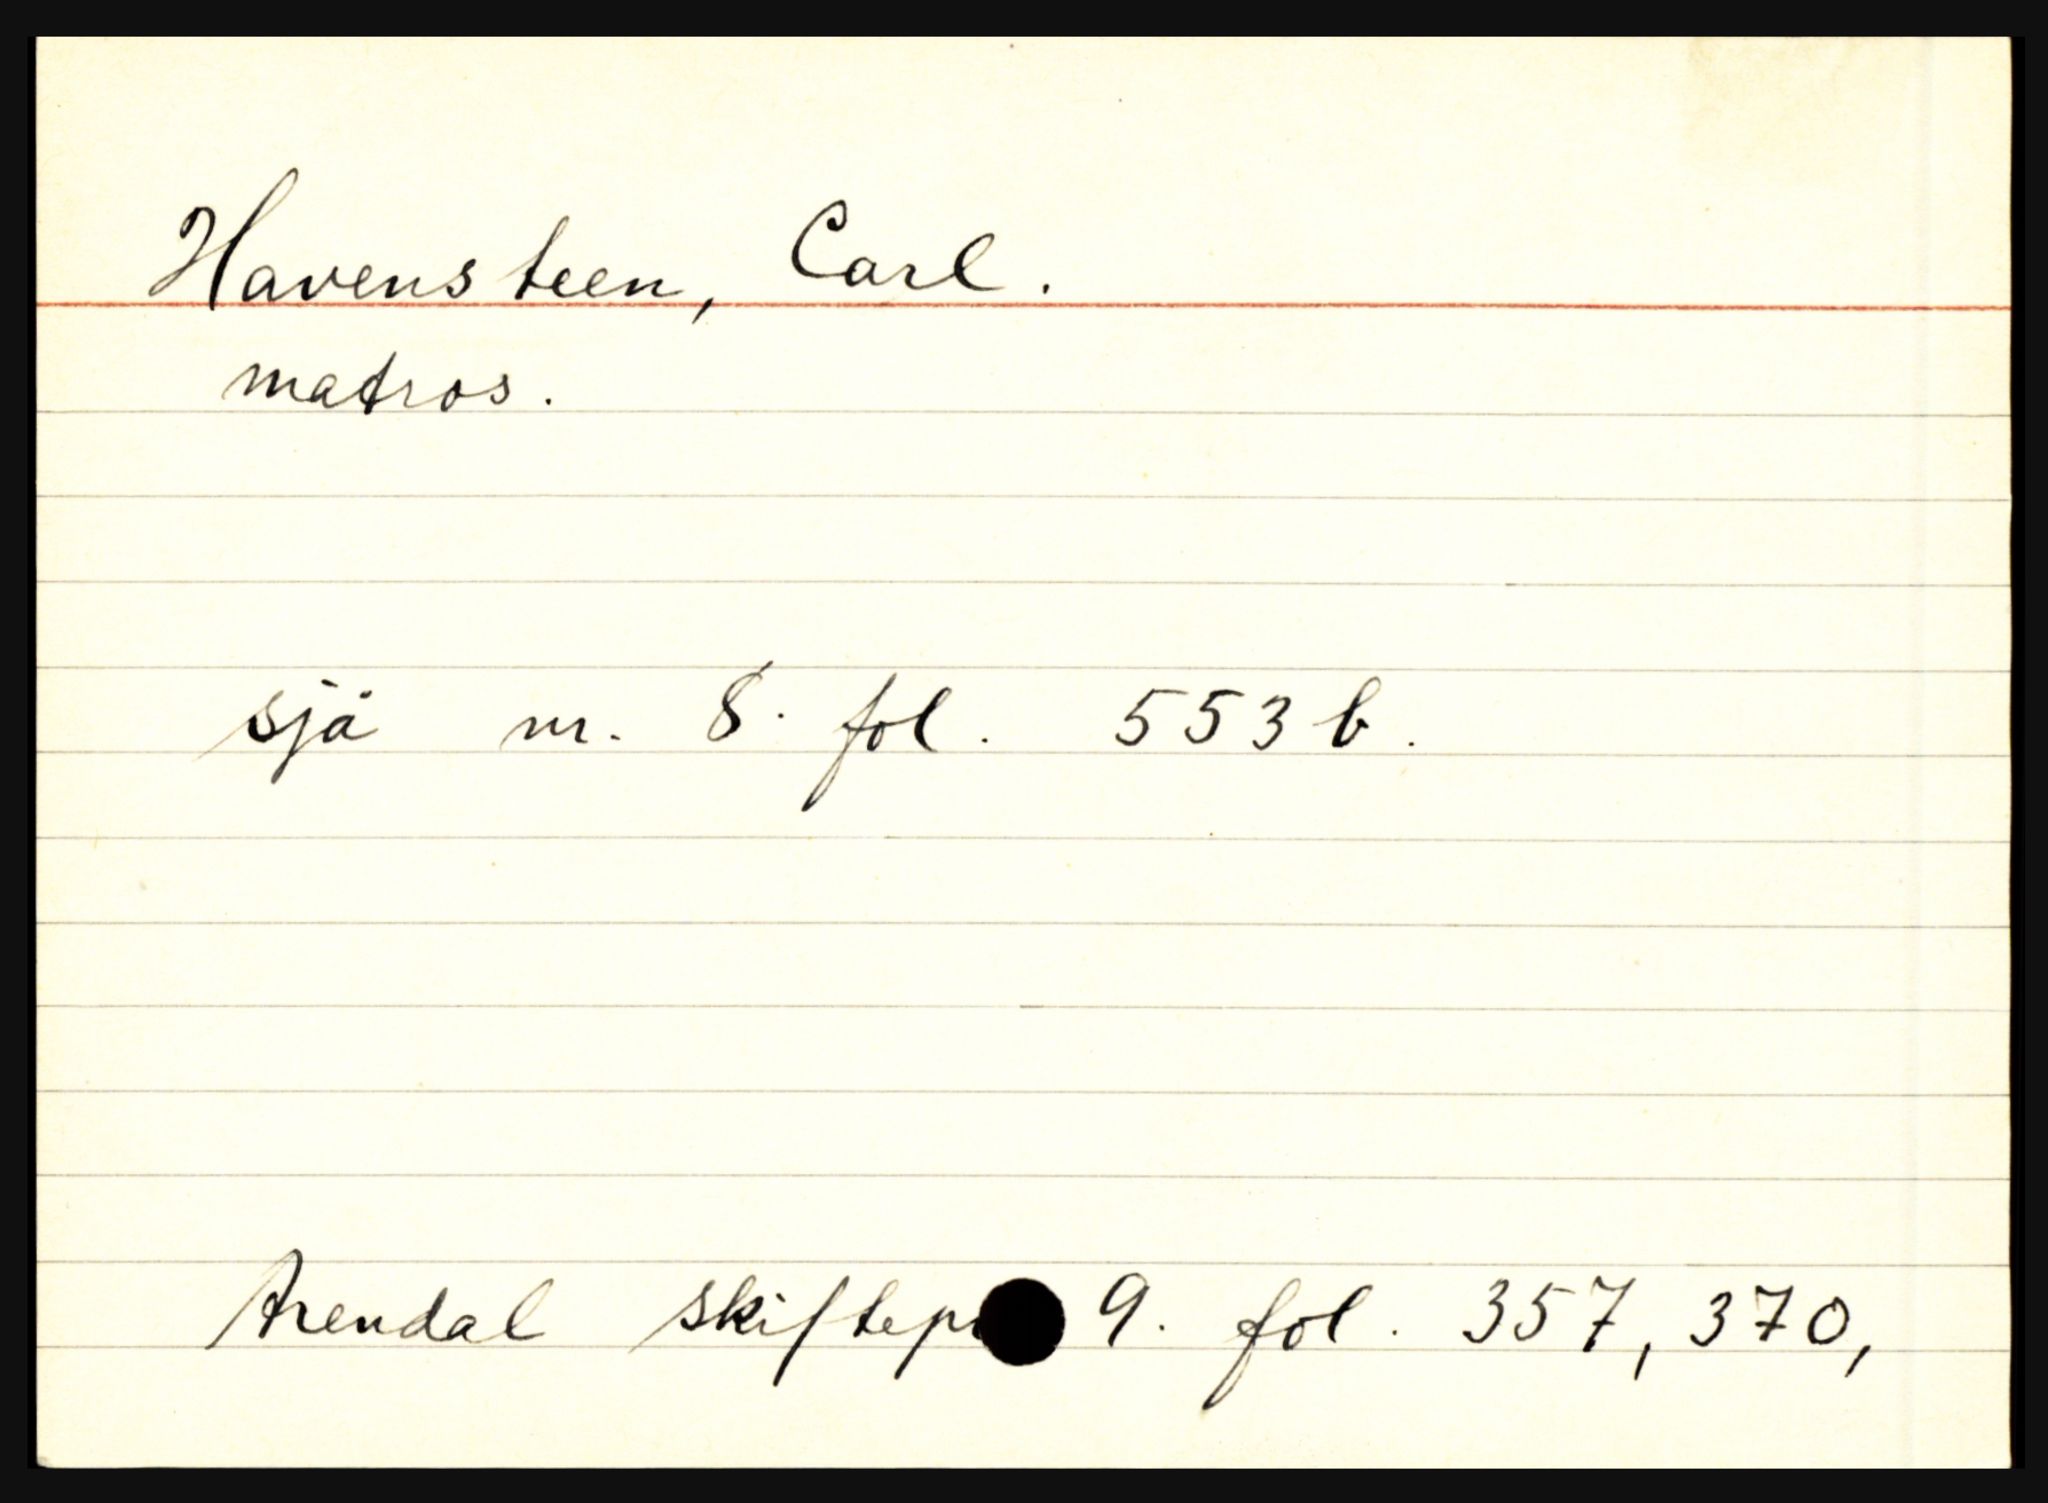 Havensteen, Carl.
matros.
sjå nr. 8. fol. 553 b.
Arendal skiftepr 9. fol. 357, 370,